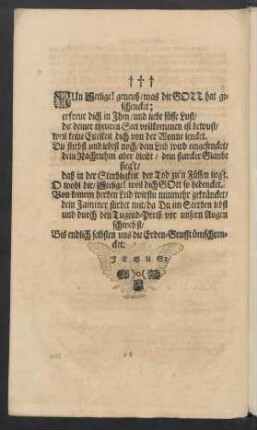 †††
NUn Seeliger geneuß / was dir GOTT hat ge-
schencket;
erfreue dich in Ihm / und liebe süsse Lust /
die deiner theuren Seel vollkommen ist bewust /
weil keine Eitelkeit dich von der Wonne lencket.
Du stirbst und lebest noch / dein Leib wird eingesencket /
dein Nachruhm aber nicht / dein starcker Glaube
sieg't /
daß in der Sterbigkeit der Tod zu'n Füssen lieg't.
O wohl dir / Seeliger weil dich GOtt so bedencket.
Von keinem herben Leid wirstu nunmehr gekräncket /
dein Jammer stirbet mit / da Du im Sterben lebst
und durch den Tugend-Preiß vor unsern Augen
schwebst /
Bis endlich selbsten uns die Erden-Grufft ümschren-
cket.
JESUS!